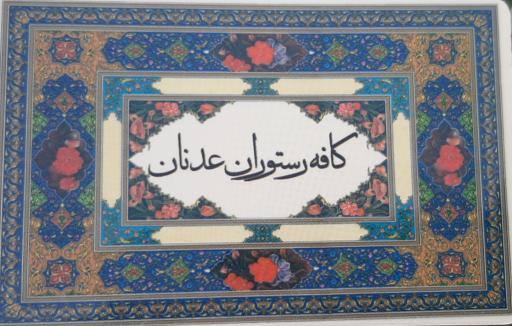 کافه رستوران عدنان